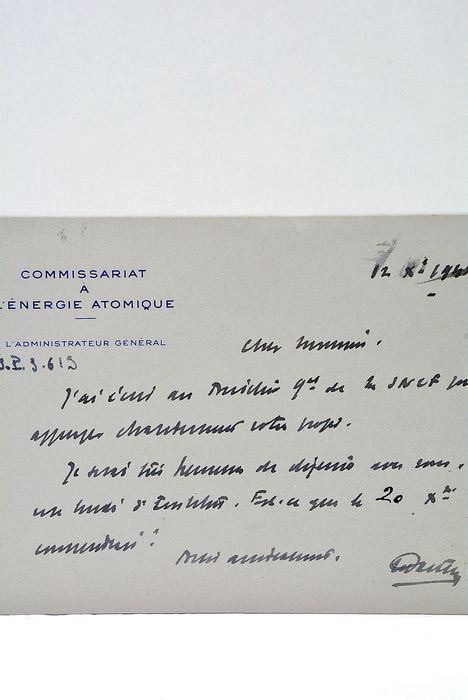 COMMISSARIAT
À
L'ÉNERGIE ATOMIQUE
L'ADMINISTRATEUR GÉNÉRAL
12 Xbre 194
Cher
J'ai écrit au Directeur Gal de la SNCF
appuyer chaleureusement votre
Je serai très heureux de déjeuner avec vous,
un lundi d'Institut. Est-ce que le 20 Xbre
conviendrait ?
Bien amicalement.